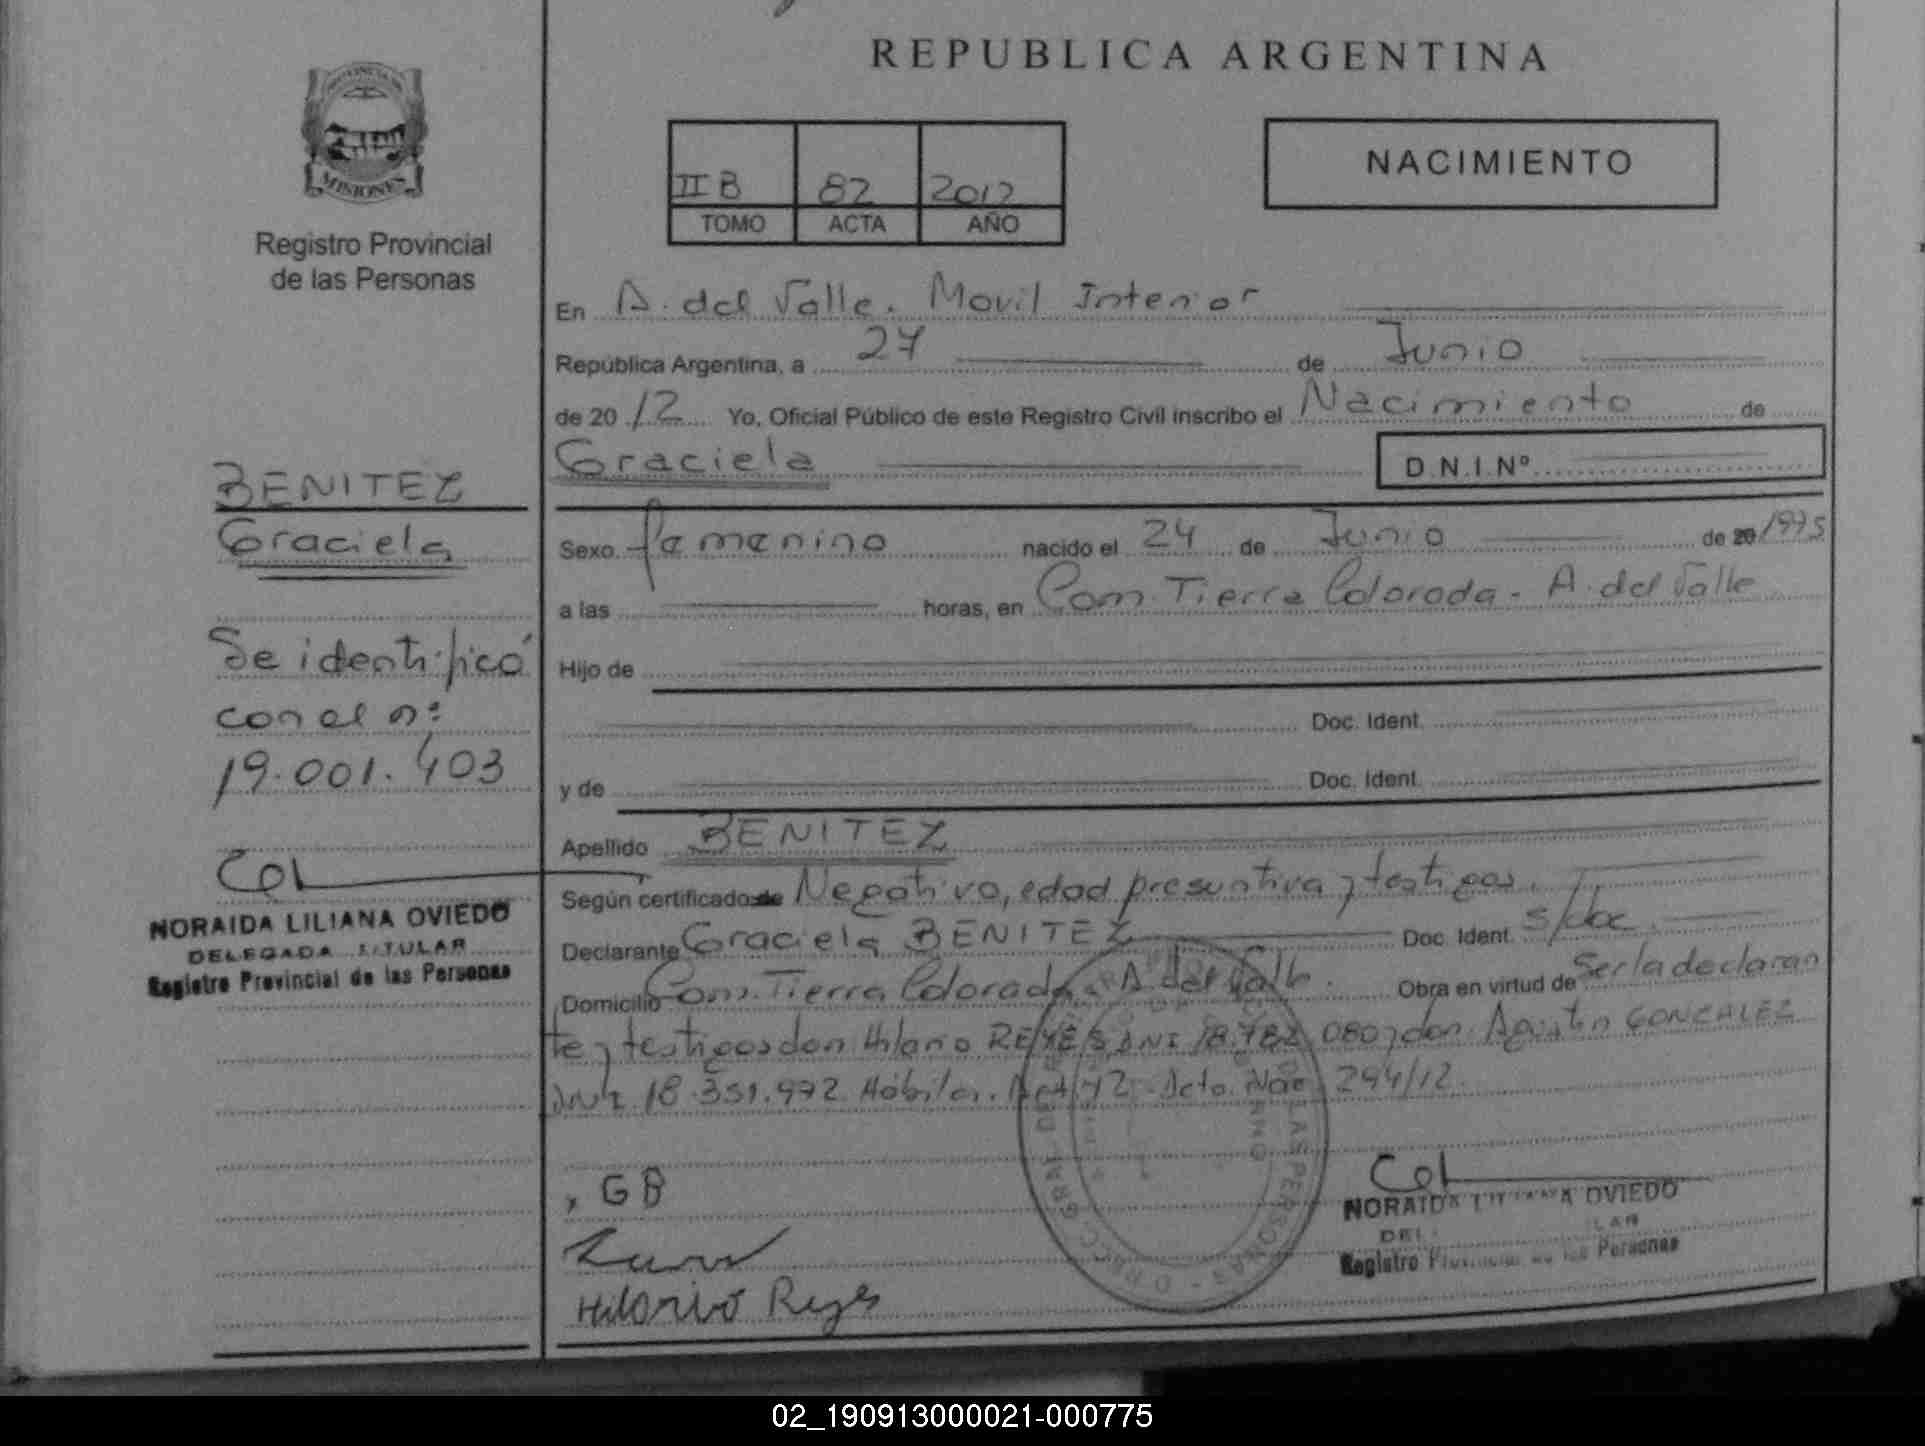 REPUBLICA ARGENTINA
PROVINCIA DE
MISIONES
Registro Provincial
de las Personas
II B 82 2012
TOMO ACTA AÑO
NACIMIENTO
En A. del Valle. Movil Interior
República Argentina, a 27 de Junio
de 20 12 Yo, Oficial Público de este Registro Civil inscribo el Nacimiento de
Graciela D.N.I.Nº
BENITEZ
Graciela
Se identificó
con el nº
19.001.403
NORAIDA LILIANA OVIEDO
DELEGADA TITULAR
Registro Provincial de las Personas
Sexo femenino nacido el 24 de Junio de 20 1975
a las horas, en Com. Tierra Colorada - A. del Valle
Hijo de
Doc. Ident.
y de Doc. Ident.
Apellido BENITEZ
Según certificado de Negativo, edad presuntiva y testigos.
Declarante Graciela BENITEZ Doc. Ident. S/doc
Domicilio Com. Tierra Colorada - A. del Valle. Obra en virtud de Ser la declaran
te y testigos don Hilario REYES DNI 18.782.080 y don Agustin GONZALEZ
DNI 18.351.972 Hábiles. Nac 294/12.
, GB
Hilario Reyes
NORAIDA OVIEDO
Registro Personas
02_190913000021-000775